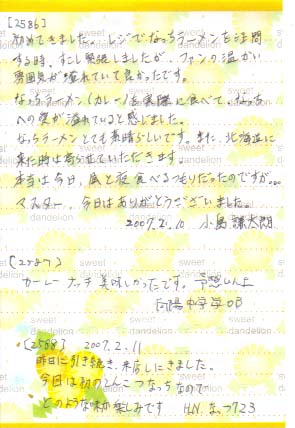 [2586]
初めてきました。レジでなっちラーメンを注文
する時、すこし緊張しましたが、ファンの温かい
雰囲気が溢れていて良かったです。
なっちラーメン(カレー)を実際に食べて、なっち
への愛が溢れていると感じました。
なっちラーメンとても素晴らしいです。また、北海道に
来た時は寄らせていただきます。
本当は今日、昼と夜食べるつもりだったのですが...
マスター、今日はありがとうございました。
2007.2.10 小島
[2587]
カーレーナッチ美味しかったです。予想以上
中学OB
[2588] 2007.2.11
昨日に引き続き、来店しにきました。
今日は初のとんこつなっちなので
どのような味か楽しみです H.N.なっつ723
sweet
dandelion